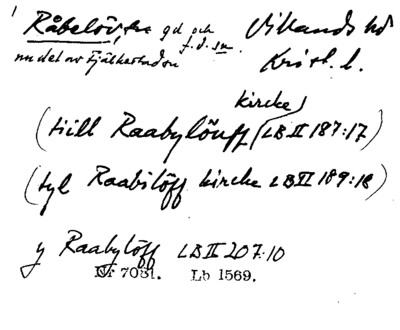 Råbelöv, sra gd och Villands hd
f.d. sn.
nu del av Fjälkestad sn Krist. l.
kircke
(tiill Raabylöuff LB II 187:17)
(tyl Raabilöff kircke LB II 189:18)
y Raabylöff LB II 207:10
Nr 7031. Lb 1569.